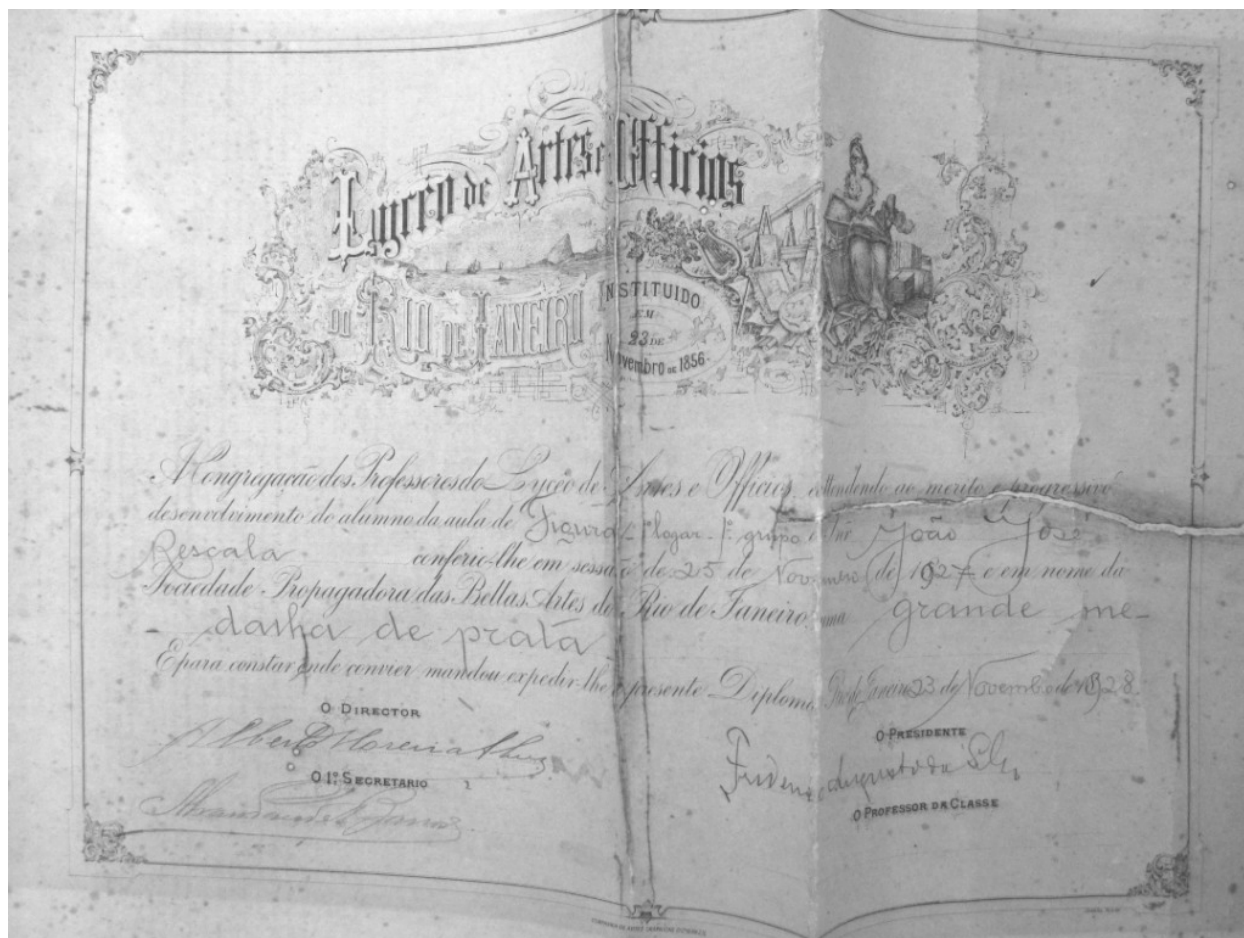 Lyceo de Artes e Officios
DO RIO DE JANEIRO
INSTITUIDO
EM
23 DE
Novembro DE 1856
A Congregação dos Professores do Lyceo de Artes e Officios, attendendo ao merito e progressivo
desenvolvimento do alumno da aula de Figura 1º logar - 1º grupo o Snr João José
Rescala conferio-lhe em sessão de 25 de Novembro de 1927 e em nome da
Sociedade Propagadora das Bellas Artes do Rio de Janeiro, uma grande me-
dalha de prata
E para constar onde convier mandou expedir-lhe o presente Diploma, Rio de Janeiro 23 de Novembro de 1928
O DIRECTOR
O PRESIDENTE
O 1º SECRETARIO
O PROFESSOR DA CLASSE